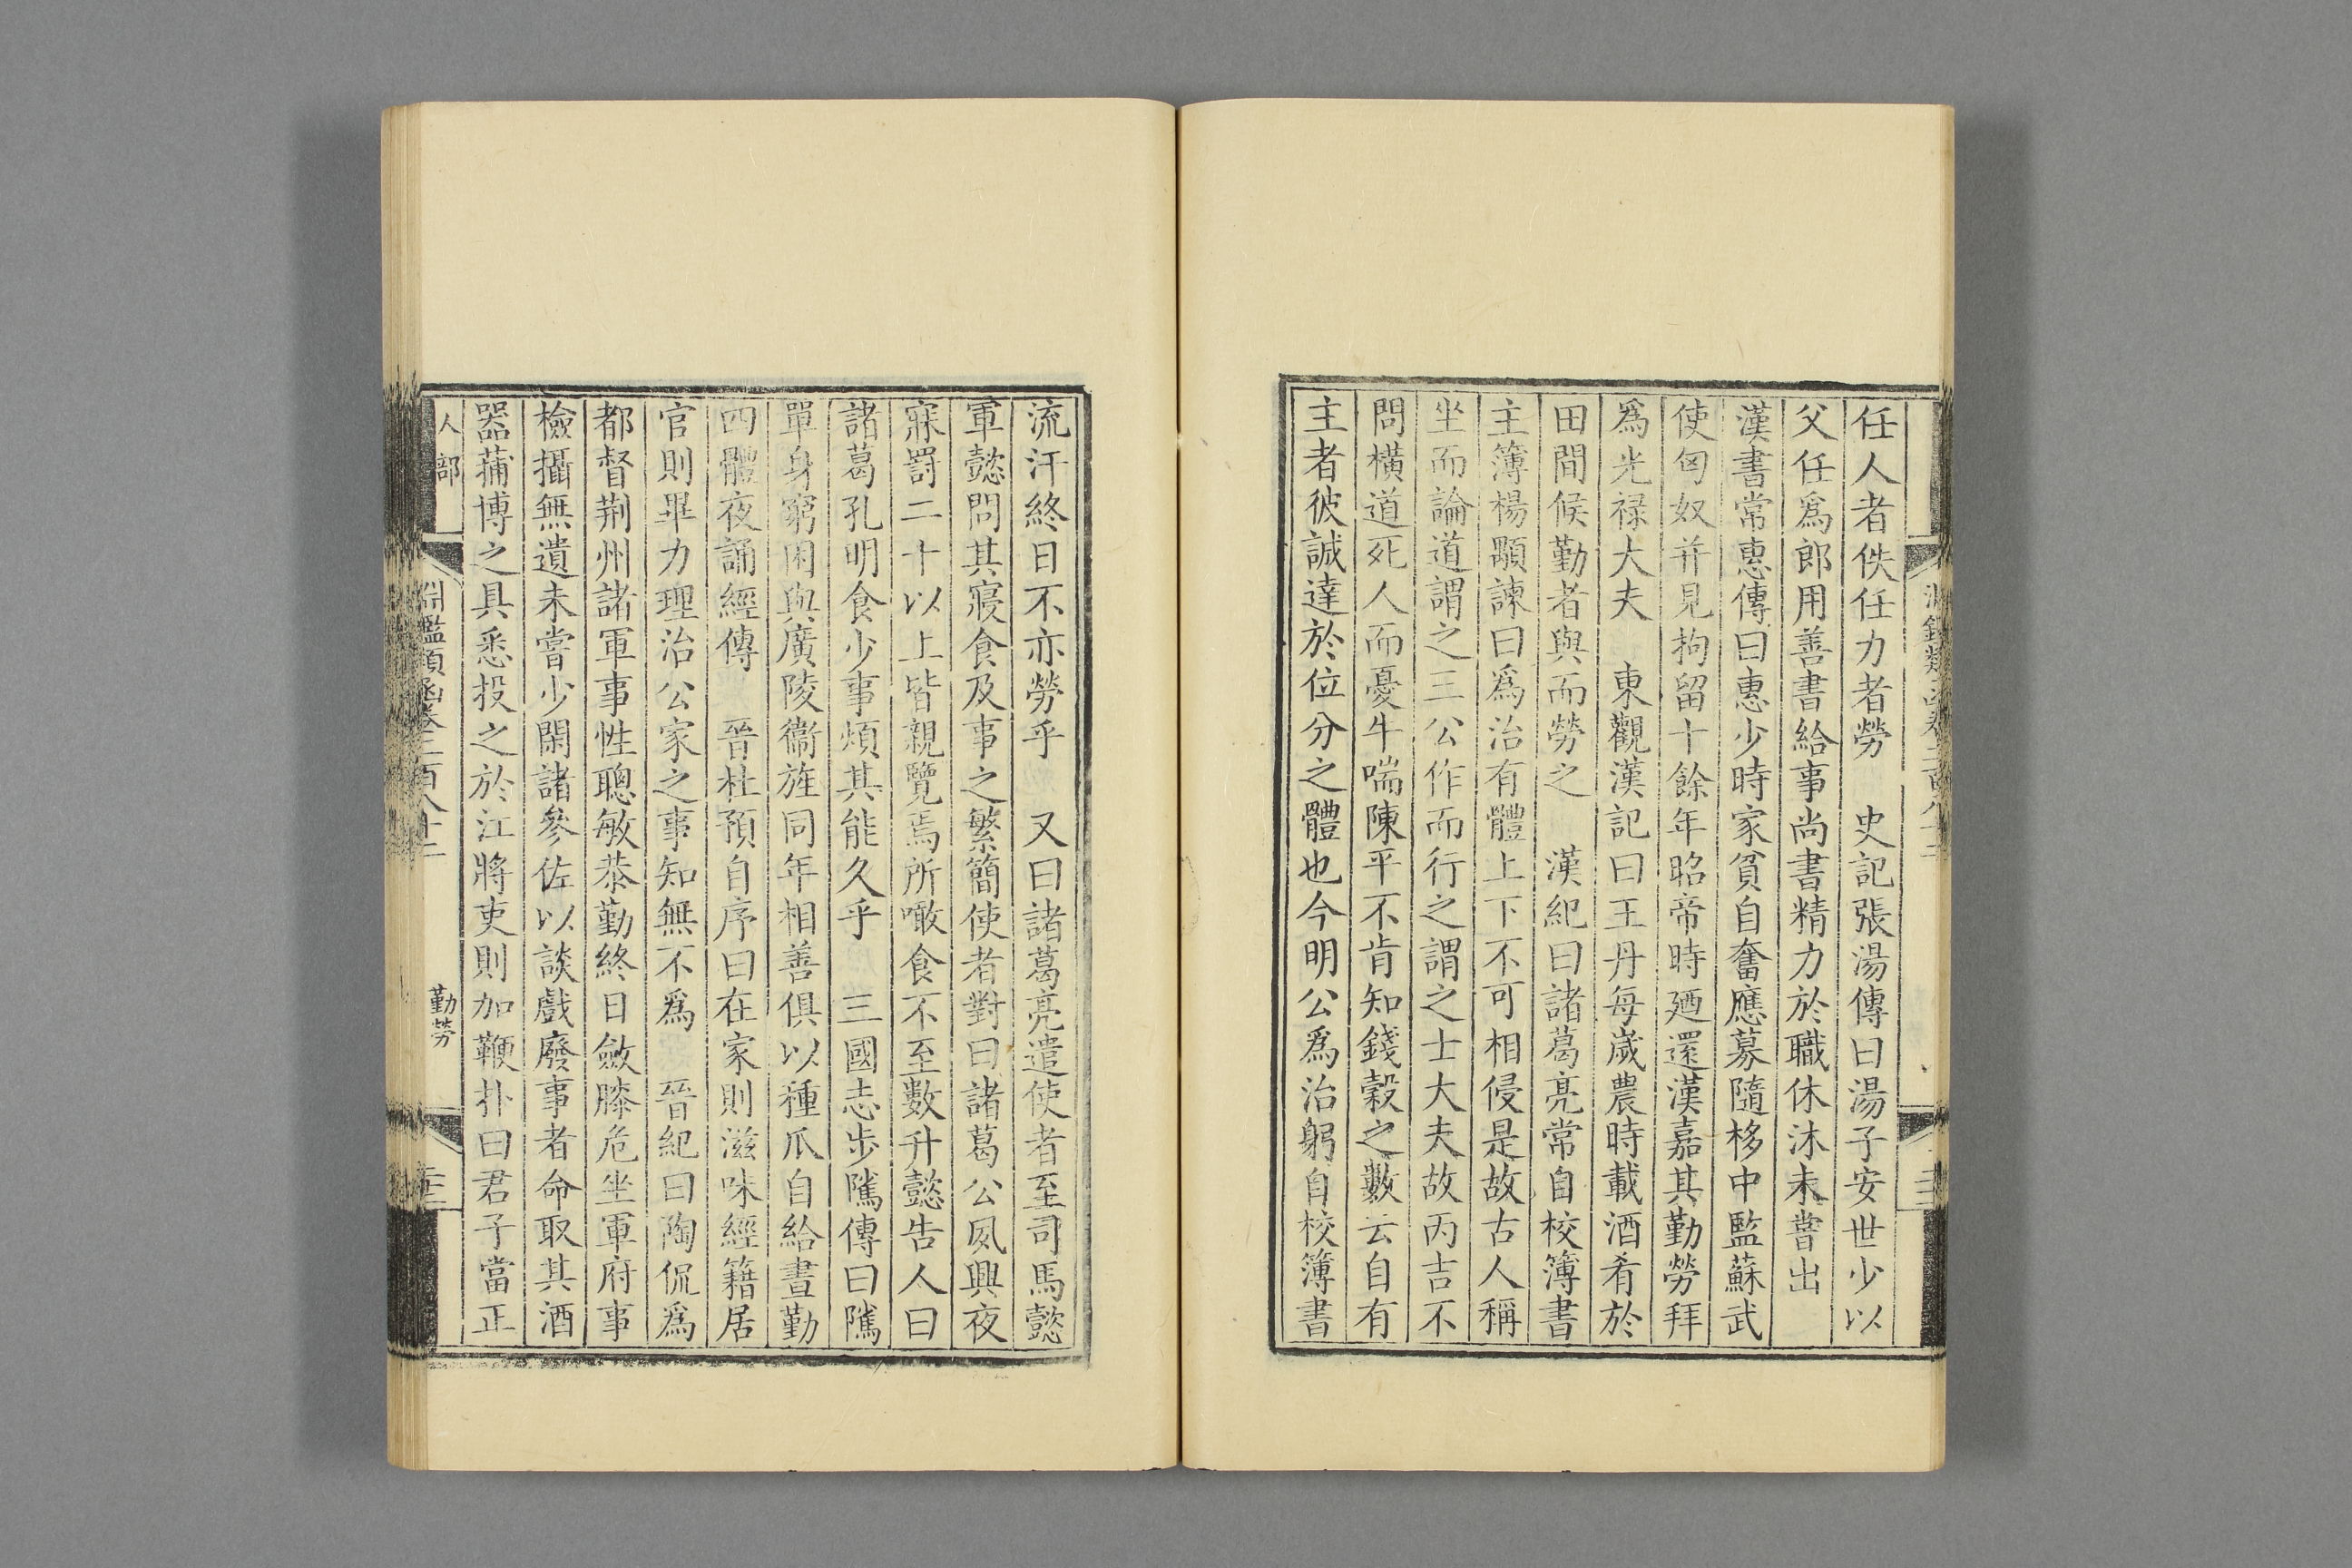 任人者佚任力者勞　史記張湯傳曰湯子安世少以
父任爲郎用善書給事尚書精力於職休沐未嘗出
漢書常惠傳曰惠少時家貧自奮應募隨栘中監蘇武
使匈奴并見拘留十餘年昭帝時廼還漢嘉其勤勞拜
爲光禄大夫　東觀漢記曰王丹每嵗農時載酒肴於
田間候勤者與而勞之　漢紀曰諸葛亮常自校簿書
主簿楊顒諫曰爲治有體上下不可相侵是故古人稱
坐而論道謂之三公作而行之謂之士大夫故丙吉不
問橫道死人而憂牛喘陳平不肯知錢穀之數云自有
主者彼誠達於位分之體也今明公爲治躬自校簿書
流汗終日不亦勞乎　又曰諸葛亮遣使者至司馬懿
軍懿問其寢食及事之繁簡使者對曰諸葛公夙興夜
寐罰二十以上皆親覽焉所噉食不至數升懿告人曰
諸葛孔明食少事煩其能久乎　三國志步隲傳曰隲
單身窮困與廣陵衞旌同年相善俱以種瓜自給晝勤
四體夜誦經傳　晉杜預自序曰在家則滋味經籍居
官則畢力理治公家之事知無不爲　晉紀曰陶侃爲
都督荆州諸軍事性聰敏恭勤終日斂膝危坐軍府事
檢攝無遺未嘗少閑諸參佐以談戲廢事者命取其酒
器蒱博之具悉投之於江將吏則加鞭扑曰君子當正
人部　淵鑑類函卷三百八十二　勤勞